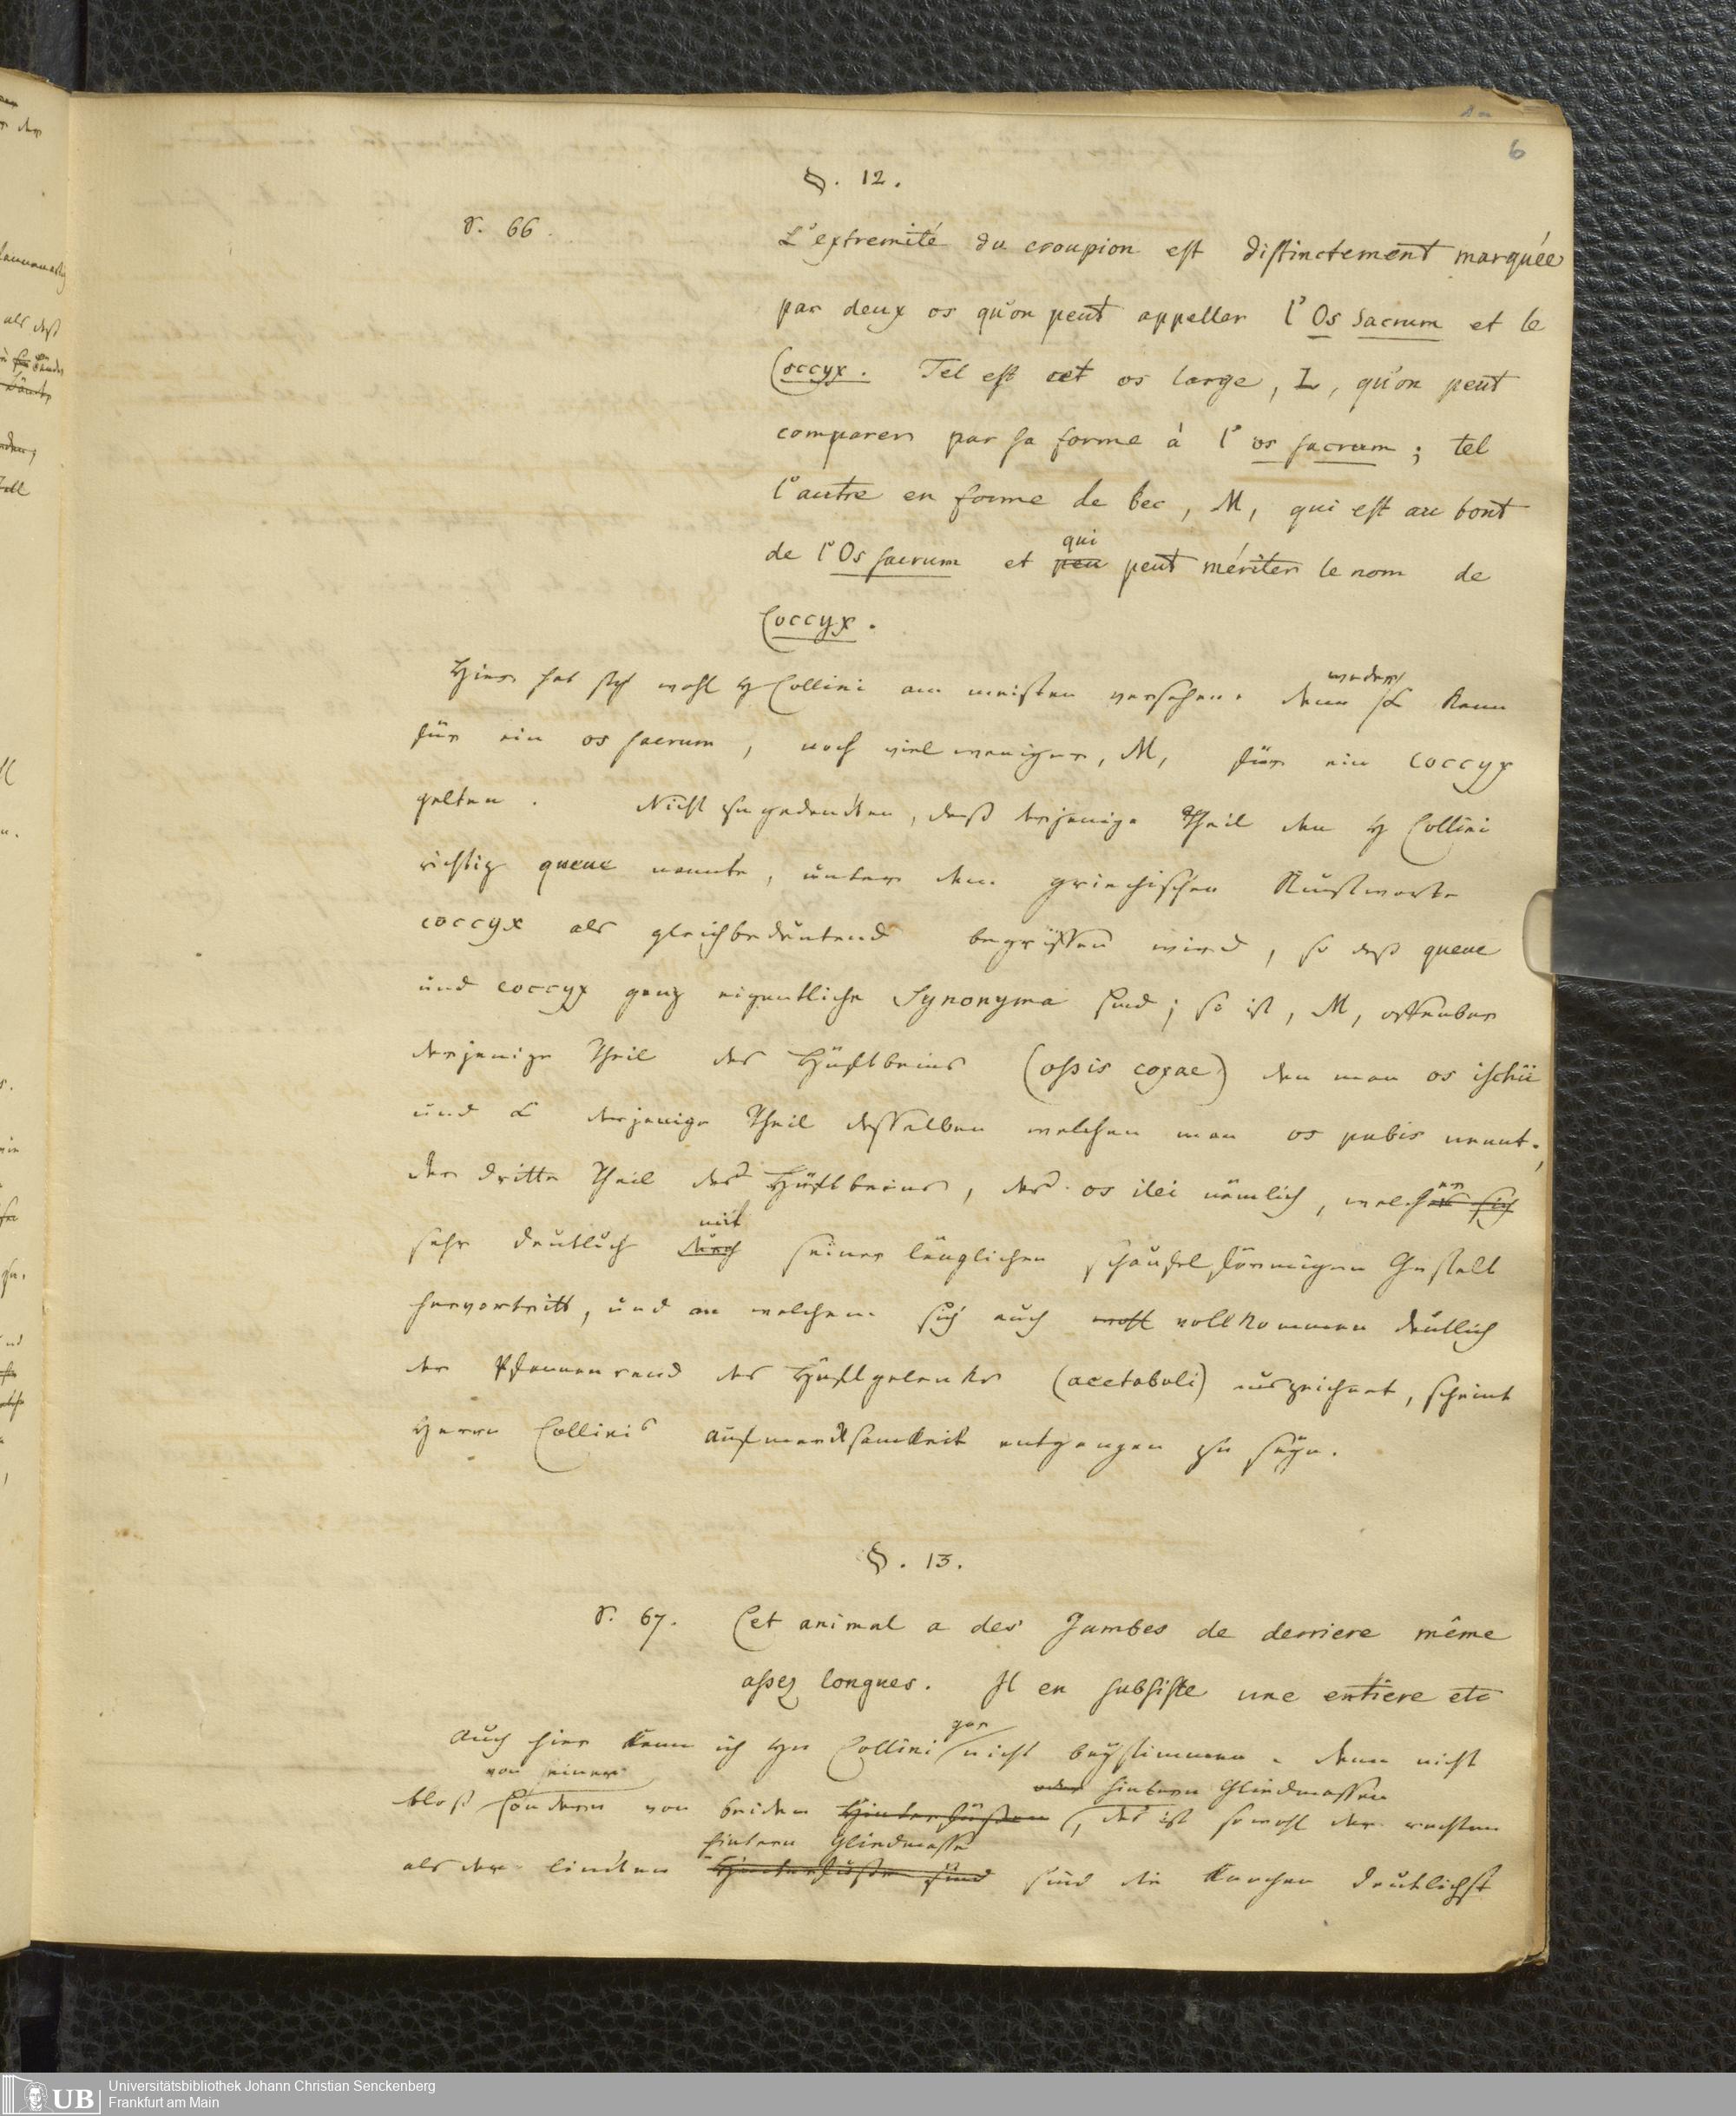 6
§. 12.
S. 66.
L'extremité du croupion est distinctement marquée
par deux os qu'on peut appeller l'Os Sacrum et le
Coccyx. Tel est cet os large, L, qu'on peut
comparer par sa forme à l'os sacrum; tel
l'autre en forme de bec, M, qui est au bout
qui
de l'Os sacrum et peu peut mériter le nom de
Coccyx.
weder
Hier hat sich wohl H Collini am meisten versehen. denn L kann
für ein os sacrum, noch viel weniger, M, für ein coccyx
gelten. Nicht zu gedencken, daß derjenige Theil den H Collini
richtig queue nannte, unter dem griechischen Kunstworte
coccyx als gleichbedeutend begriffen wird, so daß queue
und coccyx ganz eigentliche Synonyma sind; so ist, M, offenbar
derjenige Theil des Hüftbeins (ossis coxae) den man os ischii
und L derjenige Theil desselben welchen man os pubis nennt;
der dritte Theil des Hüftbeins, das os ilei nämlich, welches sich
mit
sehr deutlich durch seiner länglichen schaufelförmigen Gestalt
hervortritt, und an welchem sich auch wohl vollkommen deutlich
der Pfannenrand des Hüftgelenks (acetabuli) auszeichnet, scheint
Herrn Collinis Aufmercksamkeit entgangen zu seyn.
§. 13.
S. 67. Cet animal a des Jambes de derriere même
assez longues. Il en subsiste une entiere etc
gar
Auch hier kann ich Hn Collini nicht beystimmen. denn nicht
von einer oder hintern Gliedmassen
bloß sondern von beiden Hinterfüßen, das ist sowohl der rechten
hintern Gliedmasse
als der lincken Hinterfüße sind sind die Knochen deutlichst
UB Universitätsbibliothek Johann Christian Senckenberg
Frankfurt am Main